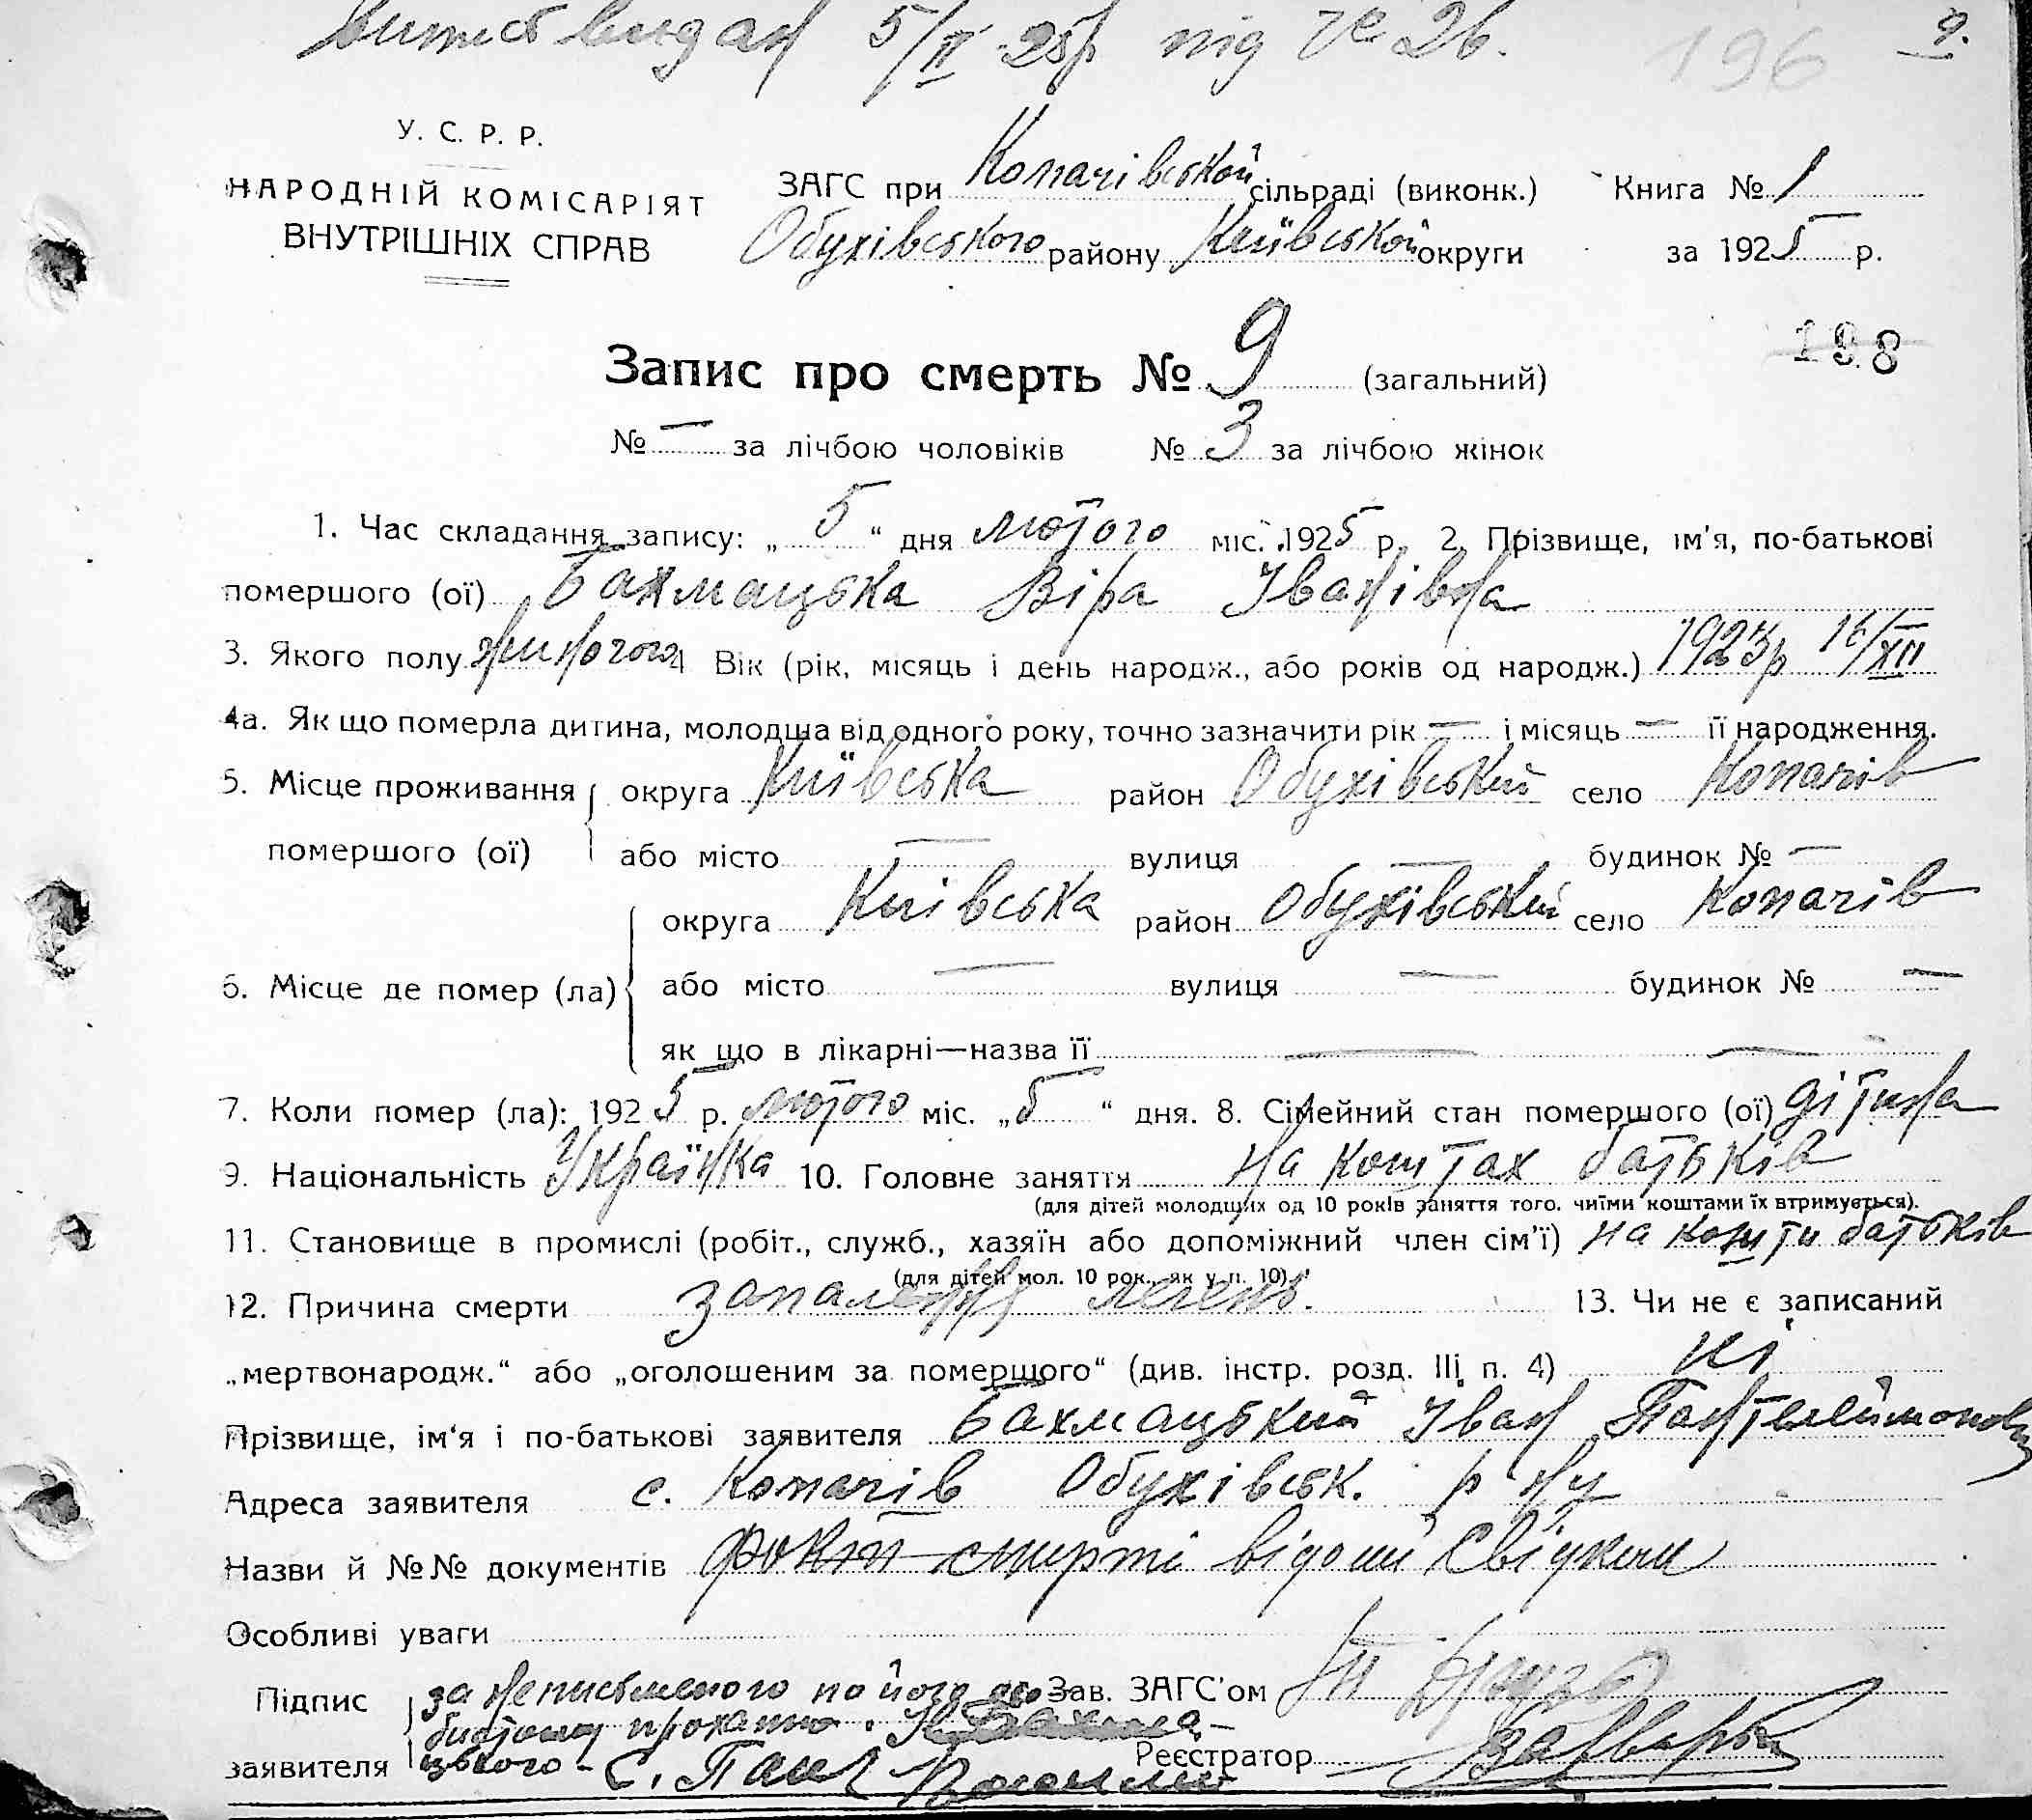 видан 5/II 25р під № 26.
196 9.
У. С. Р. Р.
НАРОДНІЙ КОМІСАРІЯТ
ВНУТРІШНІХ СПРАВ
ЗАГС при Копачівській сільраді (виконк.) Книга № 1
Обухівського району Київської округи за 1925 р.
198
Запис про смерть № 9 (загальний)
№ — за лічбою чоловіків № 3 за лічбою жінок
1. Час складання запису: „ 5 “ дня лютого міс. 1925 р. 2. Прізвище, ім'я, по-батькові
помершого (ої) Бахмацька Віра Іванівна
3. Якого полу жіночого 4 Вік (рік, місяць і день народж., або років од народж.) 1923р 16/XII
4а. Як що померла дитина, молодша від одного року, точно зазначити рік — і місяць — її народження.
5. Місце проживання округа Київська район Обухівський село Копачів
помершого (ої) або місто — вулиця — будинок № —
округа Київська район Обухівський село Копачів
6. Місце де помер (ла) або місто — вулиця — будинок № —
як що в лікарні—назва її — —
7. Коли помер (ла): 1925 р. лютого міс. „5 “ дня. 8. Сімейний стан помершого (ої) дітина
9. Національність Українка 10. Головне заняття на коштах батьків
(для дітей молодших од 10 років заняття того, чиїми коштами їх втримується).
11. Становище в промислі (робіт., служб., хазяїн або допоміжний член сім'ї) на кошти батьків
(для дітей мол. 10 рок., як у п. 10)
12. Причина смерти запалення легень. 13. Чи не є записаний
„мертвонародж.“ або „оголошеним за помершого“ (див. інстр. розд. III п. 4) ні
Прізвище, ім'я і по-батькові заявителя Бахмацький Іван Пантелеймонов
Адреса заявителя с. Копачів Обухівськ. р ну
Назви й №№ документів факт смерті відомий
Особливі уваги
Підпис за неписьменого по його осо Зав. ЗАГС'ом
бистому проханню
заявителя цького - С. Реєстратор